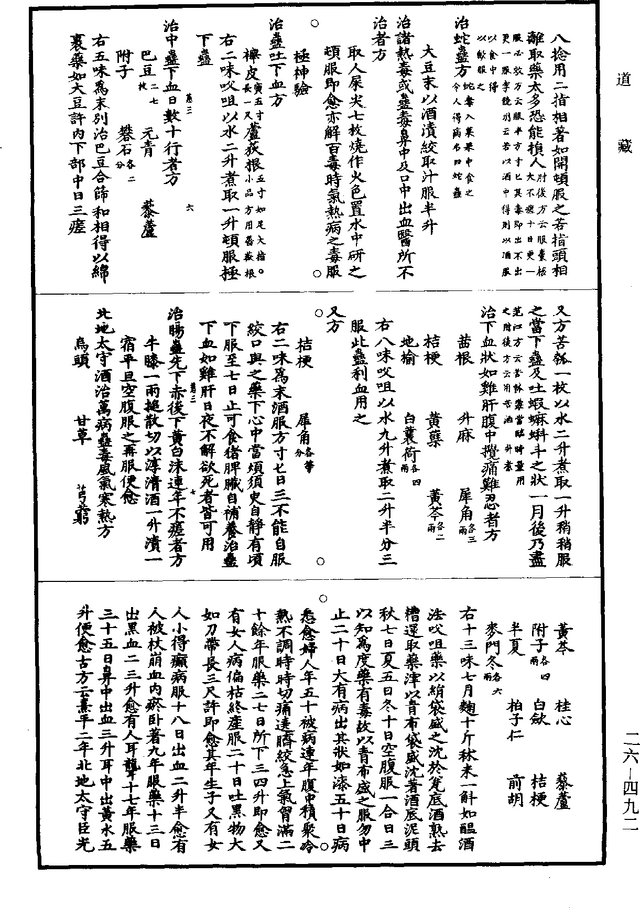 道藏
八捻用二指相著如開頓服之若指頭相
離取藥太多恐能損人肘後方云服棗枯大不過十日更一
服必效方云服半方寸匕其毒即出不出更一服李饒州云若以酒中得則以酒服
以食中得以飲服之
治蛇蠱方蛇毒入菜果中食之令人得病名曰蛇蠱
大豆末以酒漬絞取汁服半升
治諸熱毒或蠱毒鼻中及口中出血醫所不
治者方
取人屎尖七枚燒作火色置水中研之
頓服即愈亦解百毒時氣熱病之毒服
極神驗
治蠱吐下血方
檞皮廣五寸長一尺蘆荻根五寸如足大指小品方用薔薇根
右二味㕮咀以水二升煮取一升頓服極
下蠱
卷三 六
治中蠱下血日數十行者方
巴豆二七枚 元青 藜蘆
附子 礬石各二分
右五味爲末別治巴豆合篩和相得以綿
裹藥如大豆許內下部中日三瘥
又方苦瓠一枚以水二升煮取一升稍稍服
之當下蠱及吐蝦蟇蝌斗之狀一月後乃盡
范汪方云苦瓠藥當臨時量用之肘後方云用苦酒一升煮
治下血狀如雞肝腹中攪痛難忍者方
茜根 升麻 犀角各三兩
桔梗 黃蘗 黃芩各二兩
地榆 白蘘荷各四兩
右八味㕮咀以水九升煮取二升半分三
服此蠱利血用之
又方
桔梗 犀角各等分
右二味爲末酒服方寸匕日三不能自服
絞口與之藥下心中當煩須臾自靜有頃
下服至七日止可食猪脾臟自補養治蠱
下血如雞肝日夜不解欲死者皆可用
卷三 七
治腸蠱先下赤後下黃白沫連年不瘥者方
牛膝一兩搥散切以淳清酒一升漬一
宿平旦空腹服之再服便愈
北地太守酒治萬病蠱毒風氣寒熱方
烏頭 甘草 芎藭
黃芩 桂心 藜蘆
附子各四兩 白斂 桔梗
半夏 柏子仁 前胡
麥門冬各六兩
右十三味七月麴十斤秫米一斛如醞酒
法㕮咀藥以絹袋盛之沈於瓮底酒熟去
糟還取藥滓以青布袋盛沈著酒底泥頭
秋七日夏五日冬十日空腹服一合日三
以知爲度藥有毒故以青布盛之服勿中
止二十日大有病出其狀如漆五十日病
悉愈婦人年五十被病連年腹中積聚冷
熱不調時時切痛達臍絞急上氣胷滿二
十餘年服藥二七日所下三四升即愈又
有女人病偏枯絕產服二十日吐黑物大
如刀帶長三尺許即愈其年生子又有女
人小得癲病服十八日出血二升半愈有
人被杖崩血內瘀臥著九年服藥十三日
出黑血二三升愈有人耳聾十七年服藥
三十五日鼻中出血三升耳中出黃水五
升便愈古方云熹平二年北地太守臣光
二六—四九二